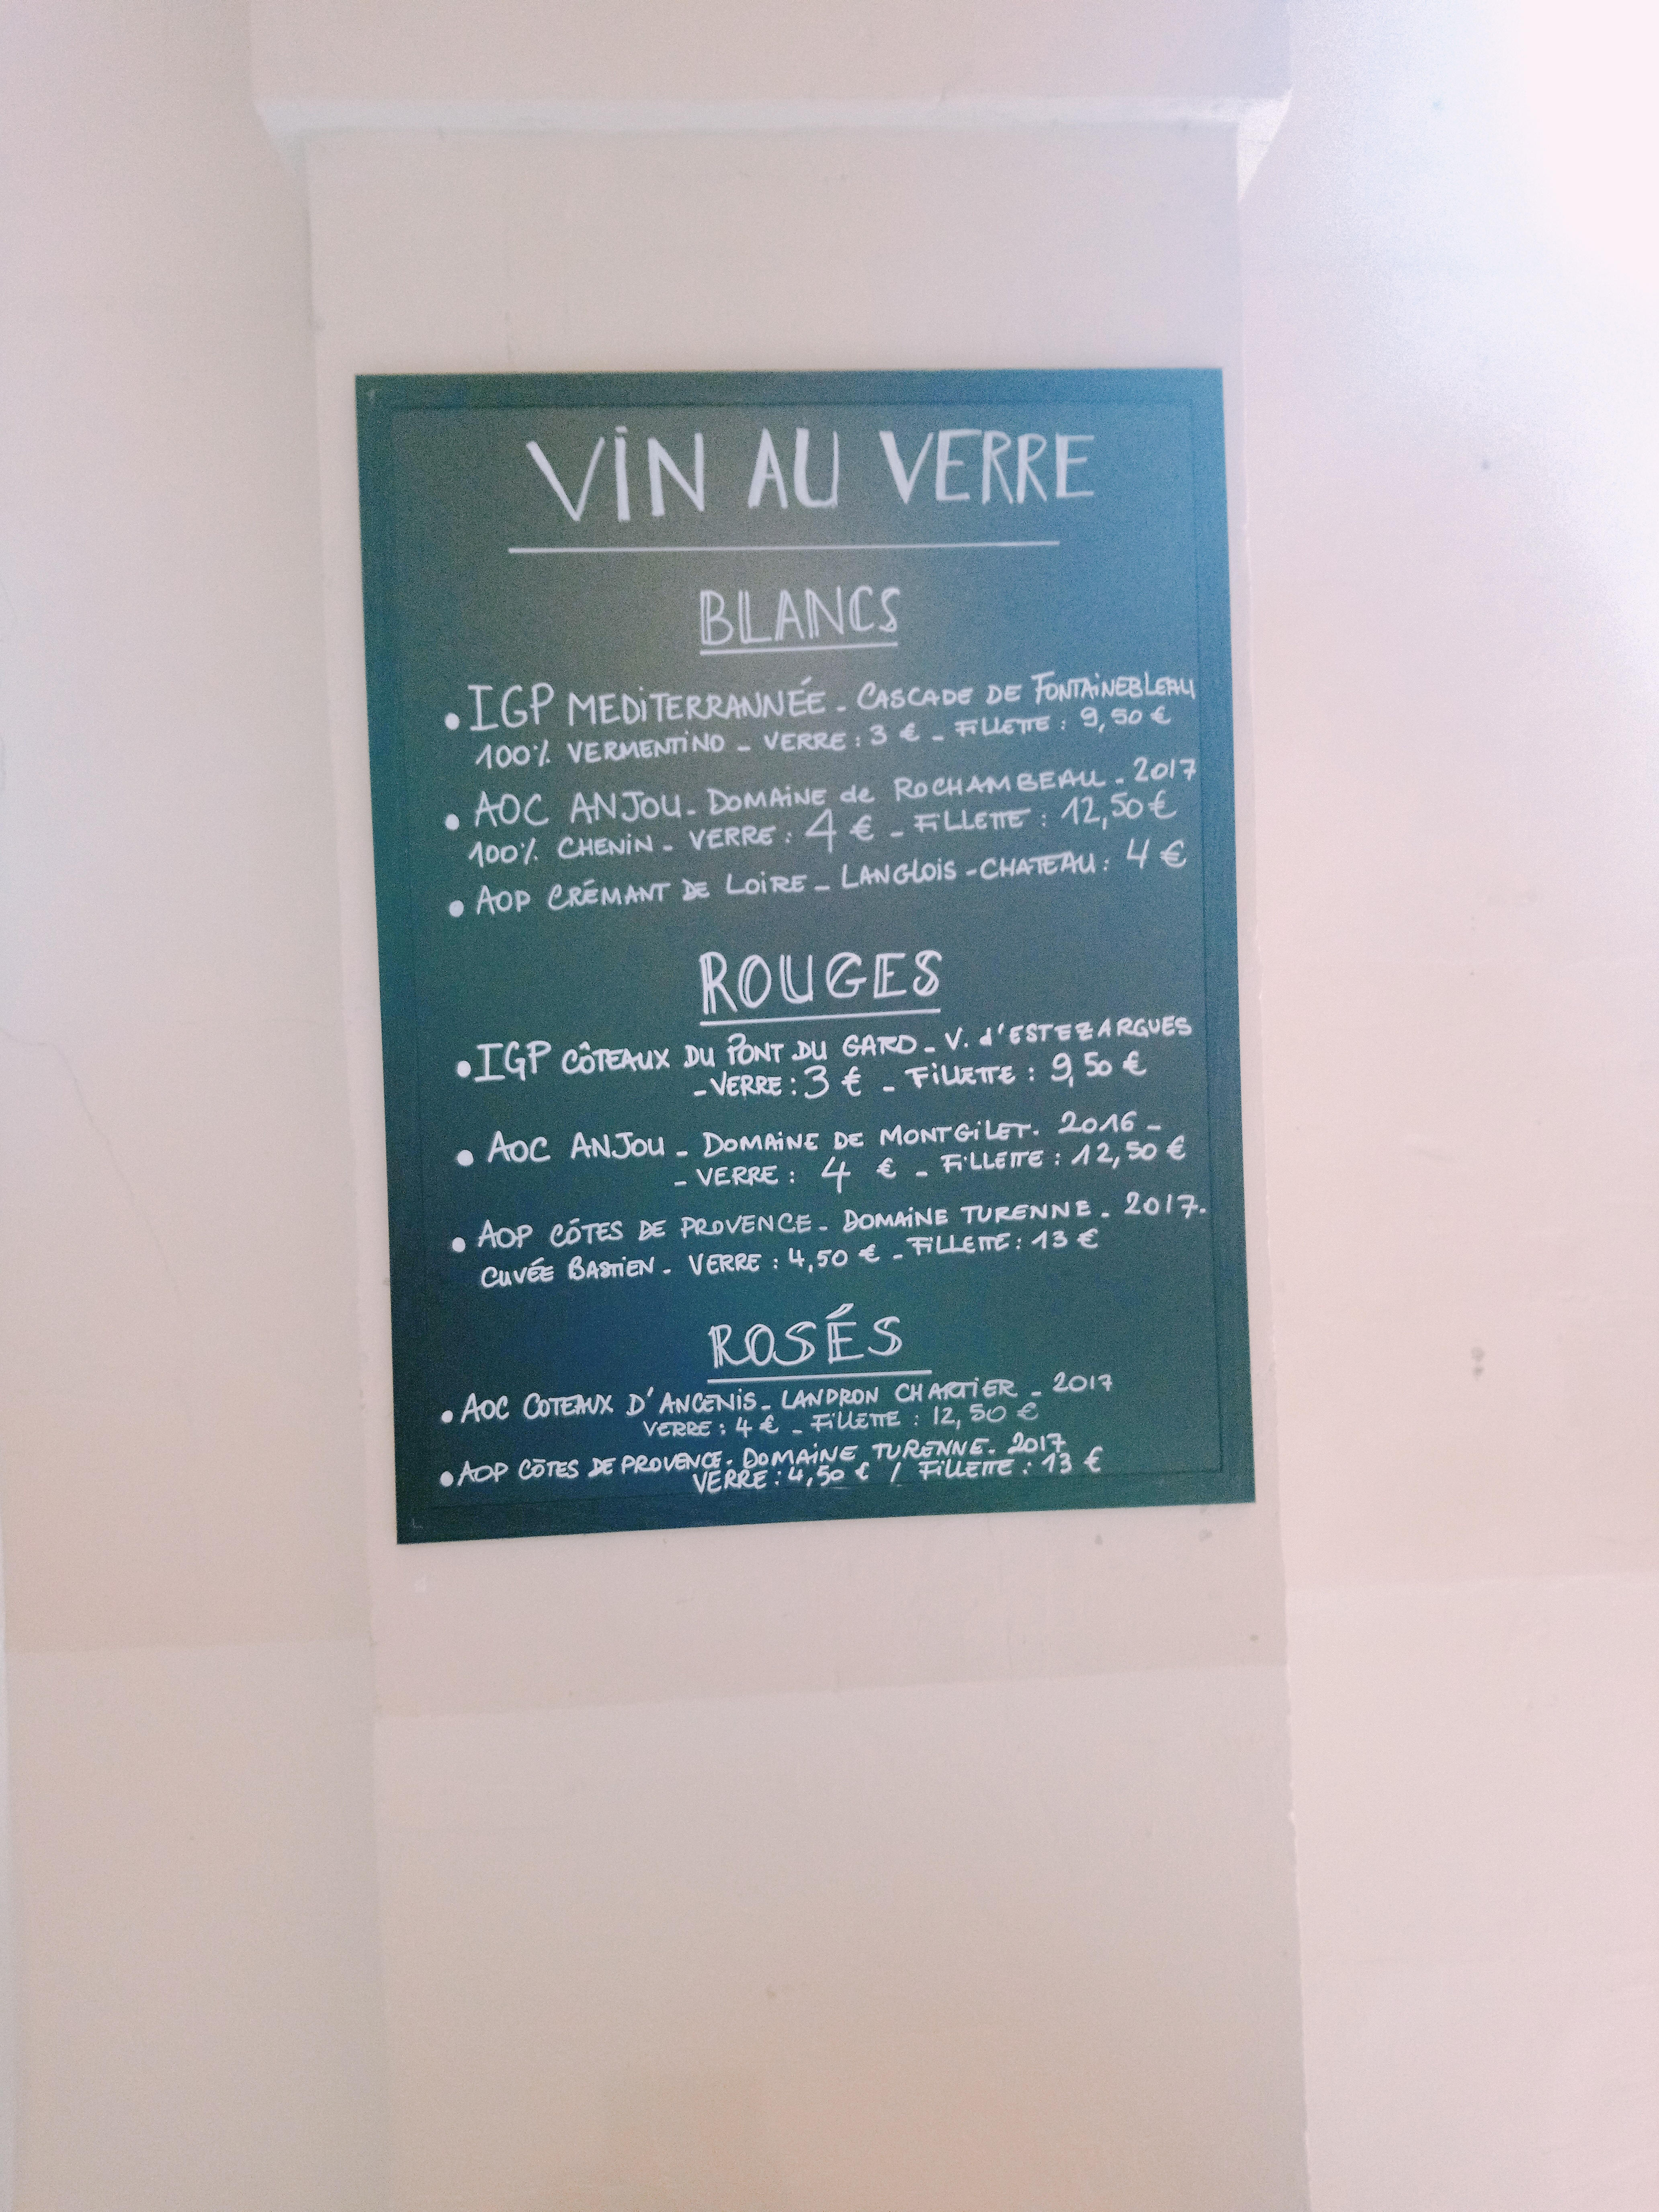 VIN AU VERRE
BLANCS
• IGP MEDITERRANNÉE - CASCADE DE FONTAINEBLEAU
100% VERMENTINO - VERRE : 3 € - FILLETTE : 9,50 €
• AOC ANJOU - DOMAINE de ROCHAMBEAU - 2017
100% CHENIN - VERRE : 4 € - FILLETTE : 12,50 €
• AOP CRÉMANT DE LOIRE - LANGLOIS - CHATEAU : 4 €
ROUGES
• IGP CÔTEAUX DU PONT DU GARD - V. d'ESTEZARGUES
- VERRE : 3 € - FILLETTE : 9,50 €
• AOC ANJOU - DOMAINE DE MONTGILET. 2016 -
- VERRE : 4 € - FILLETTE : 12,50 €
• AOP CÔTES DE PROVENCE - DOMAINE TURENNE - 2017.
CUVÉE BASTIEN - VERRE : 4,50 € - FILLETTE : 13 €
ROSÉS
• AOC COTEAUX D'ANCENIS - LANDRON CHARTIER - 2017
VERRE : 4 € - FILLETTE : 12,50 €
• AOP CÔTES DE PROVENCE. DOMAINE TURENNE - 2017
VERRE : 4,50 € / FILLETTE : 13 €